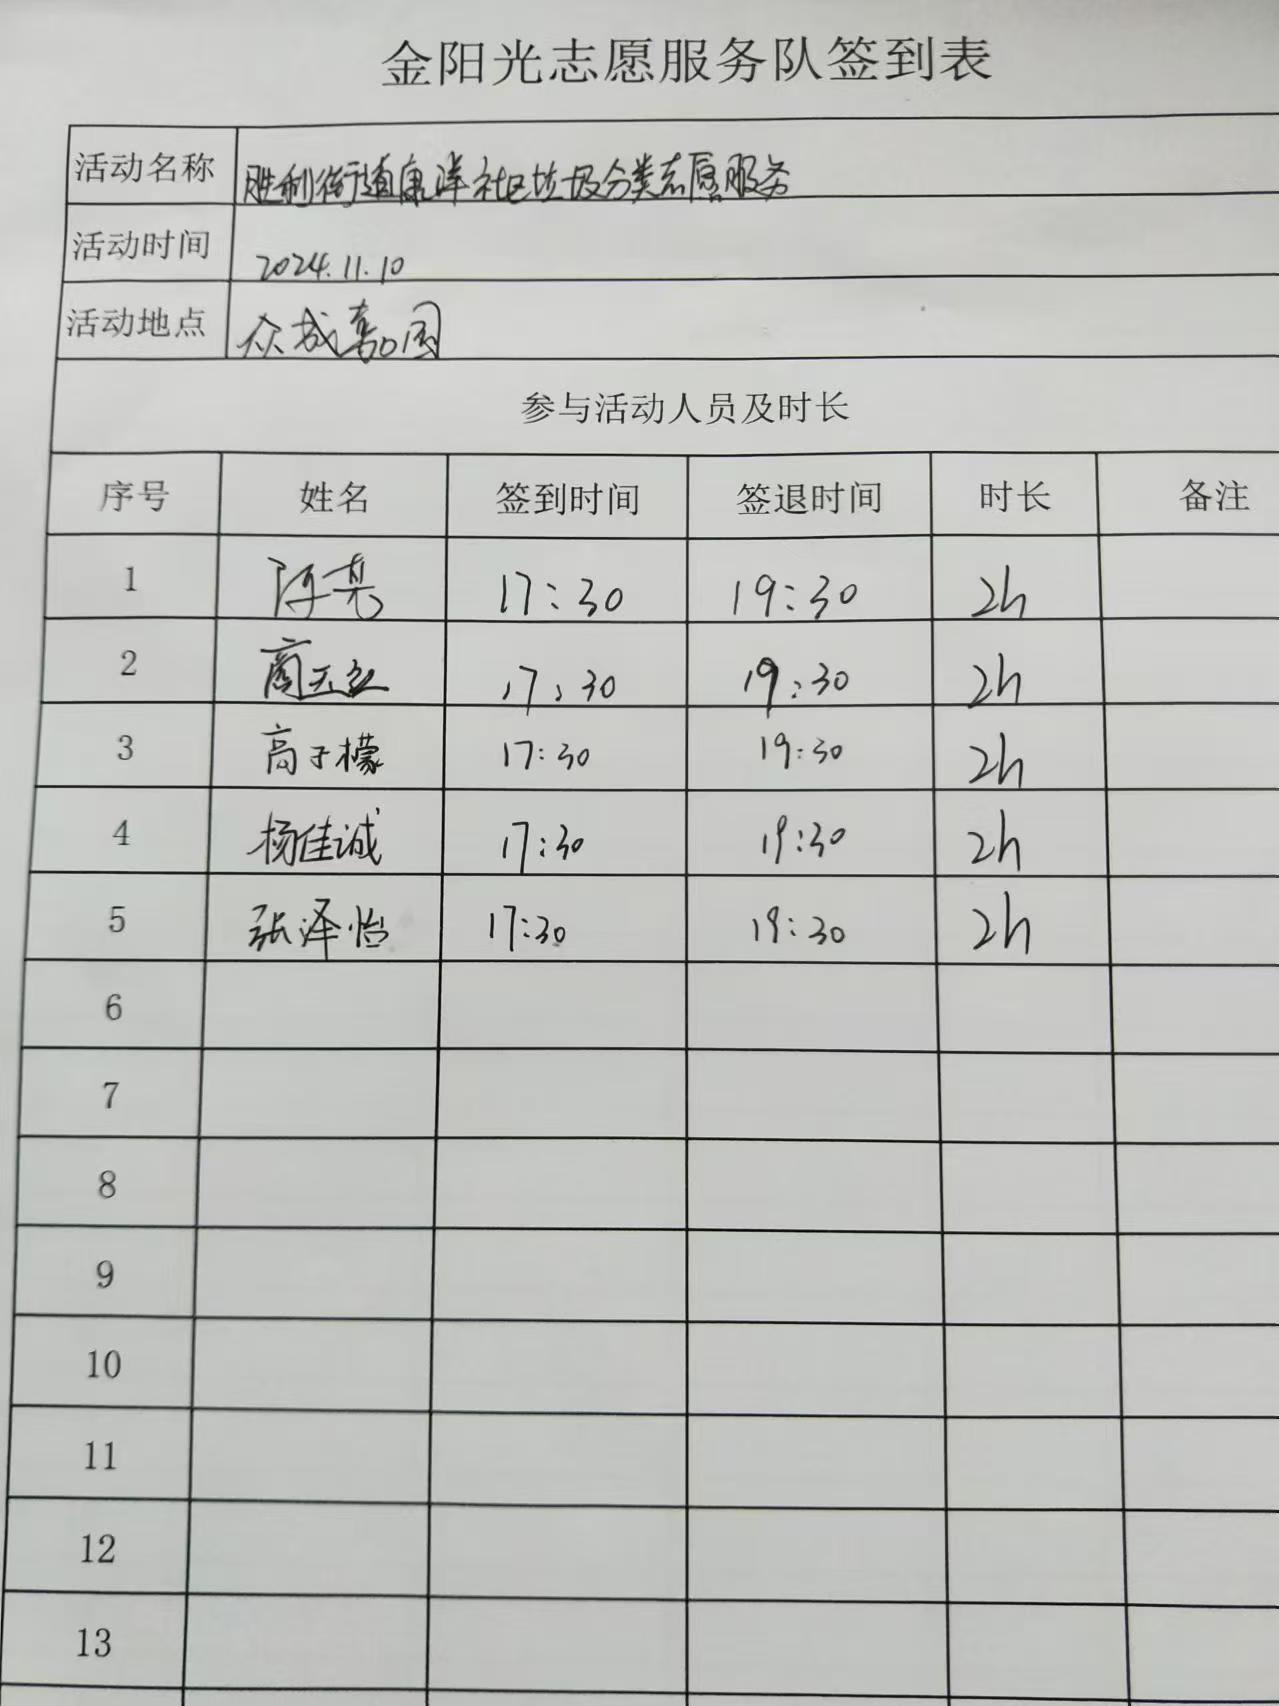 金阳光志愿服务队签到表
活动名称 胜利街道康洋社区垃圾分类志愿服务
活动时间 2024.11.10
活动地点 众成嘉园
参与活动人员及时长
序号 姓名 签到时间 签退时间 时长 备注
1 17:30 19:30 2h
2 17:30 19:30 2h
3 高子檬 17:30 19:30 2h
4 杨佳诚 17:30 19:30 2h
5 张泽怡 17:30 19:30 2h
6
7
8
9
10
11
12
13